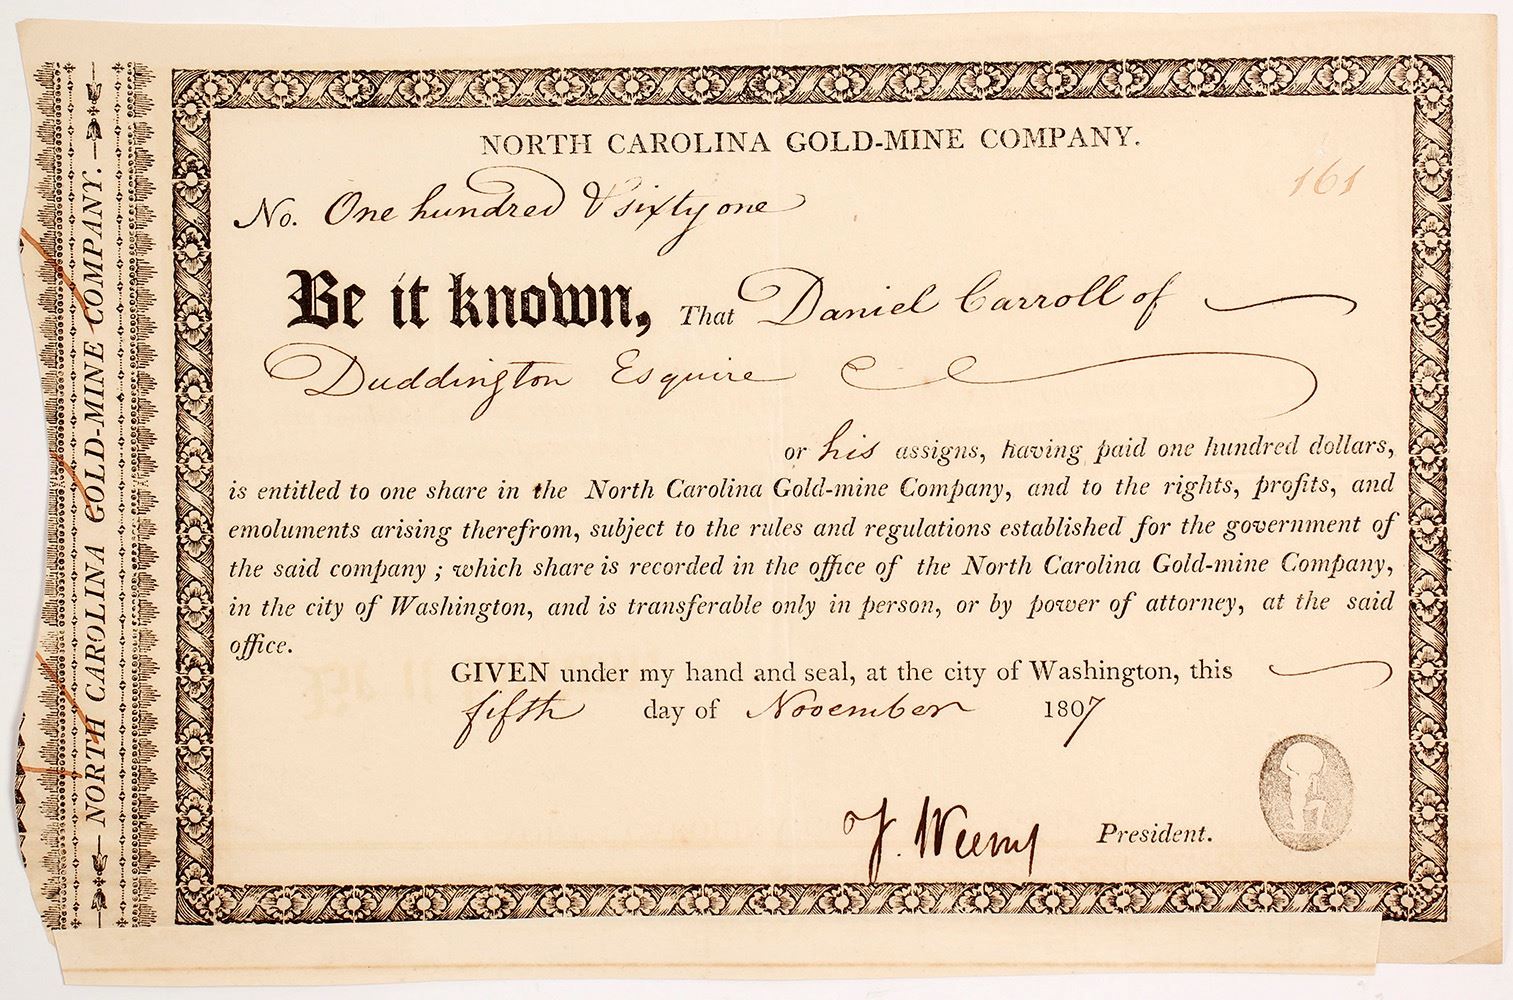 NORTH CAROLINA GOLD-MINE COMPANY.
NORTH CAROLINA GOLD-MINE COMPANY.
161
No. One hundred & sixty one
Be it known, That Daniel Carroll of
Duddington Esquire
or his assigns, having paid one hundred dollars,
is entitled to one share in the North Carolina Gold-mine Company, and to the rights, profits, and
emoluments arising therefrom, subject to the rules and regulations established for the government of
the said company ; which share is recorded in the office of the North Carolina Gold-mine Company,
in the city of Washington, and is transferable only in person, or by power of attorney, at the said
office.
GIVEN under my hand and seal, at the city of Washington, this
fifth day of November 1807
J. Weems President.